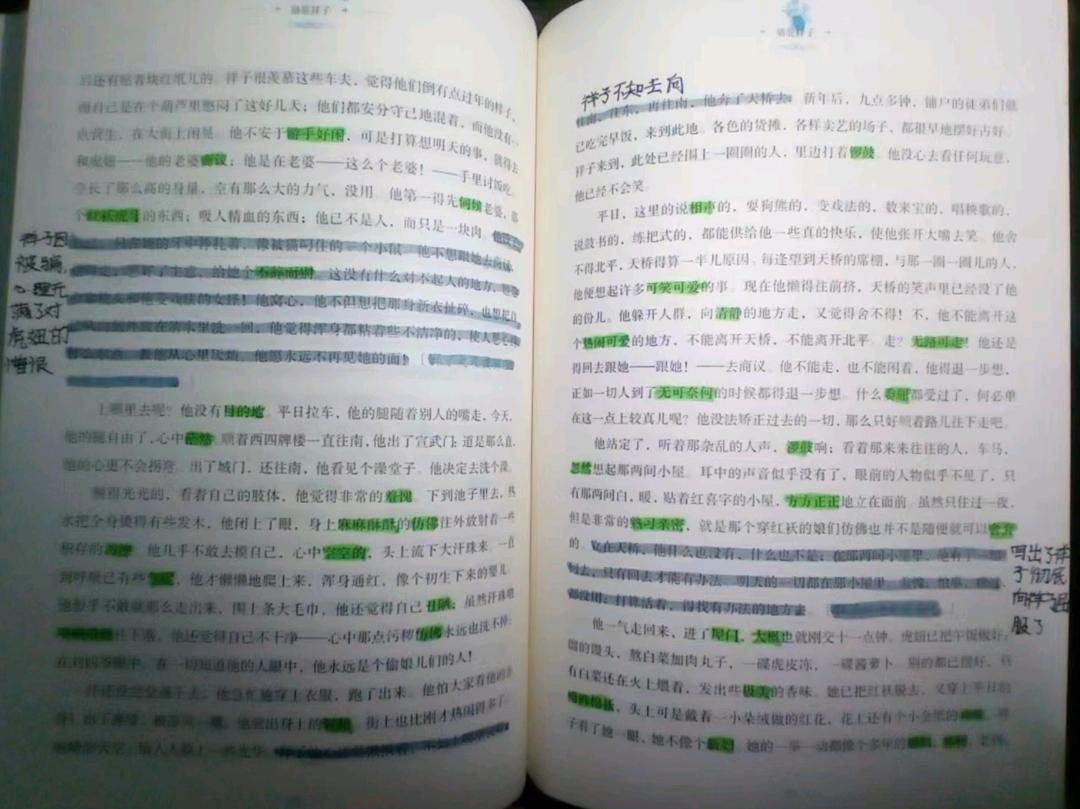 骆驼祥子
后还有贴着块红纸儿的。祥子很羡慕这些车夫,觉得他们倒有点过年的样子,
而自己是在个葫芦里憋闷了这好几天;他们都安分守己地混着,而他没有一
点营生,在大街上闲晃。他不安于游手好闲,可是打算想明天的事,就得去
和虎妞——他的老婆商议;他是在老婆——这么个老婆!——手里讨饭吃。
空长了那么高的身量,空有那么大的力气,没用。他第一得先伺候老婆,那
个红袄虎牙的东西;吸人精血的东西;他已不是人,而只是一块肉。他没了
只在她的牙中挣扎着,像被猫叼住的一个小鼠。他不想跟她去商议,
想好了主意,给她个不辞而别。这没有什么对不起人的地方,
他窝心,他不但想把那身新衣扯碎,也想把自
在清水里洗一回,他觉得浑身都粘着些不洁净的,使人恶心的
什么东西,教他从心里厌烦。他愿永远不再见她的面!
祥子因
被骗,
心理充
满了对
虎妞的
憎恨
上哪里去呢?他没有目的地。平日拉车,他的腿随着别人的嘴走,今天,
他的腿自由了,心中茫然。顺着西四牌楼一直往南,他出了宣武门:道是那么直,
他的心更不会拐弯。出了城门,还往南,他看见个澡堂子。他决定去洗个澡。
脱得光光的,看着自己的肢体,他觉得非常的羞愧。下到池子里去,热
水把全身烫得有些发木,他闭上了眼,身上麻麻酥酥的仿佛往外放射着一些
积存的污浊。他几乎不敢去摸自己,心中空空的,头上流下大汗珠来。一直
到呼吸已有些急促,他才懒懒地爬上来,浑身通红,像个初生下来的婴儿。
他似乎不敢就那么走出来,围上条大毛巾,他还觉得自己丑陋;虽然汗珠噼
往下落,他还觉得自己不干净——心中那点污秽仿佛永远也洗不掉:
在刘四爷眼中,在一切知道他的人眼中,他永远是个偷娘儿们的人!
汗还没完全落下去,他急忙地穿上衣服,跑了出来。他怕大家看他的赤
身!出了澡堂,被凉风一飕,他觉出身上的轻松。街上也比刚才热闹得多了。
响晴的天空,给人人脸上一些光华。
骆驼祥子
祥子不知去向
往南,往东,再往南,他奔了天桥去。新年后,九点多钟,铺户的徒弟们就
已吃完早饭,来到此地。各色的货摊,各样卖艺的场子,都很早地摆好占好。
祥子来到,此处已经围上一圈圈的人,里边打着锣鼓。他没心去看任何玩意,
他已经不会笑。
平日,这里的说相声的,耍狗熊的,变戏法的,数来宝的,唱秧歌的,
说鼓书的,练把式的,都能供给他一些真的快乐,使他张开大嘴去笑。他舍
不得北平,天桥得算一半儿原因。每逢望到天桥的席棚,与那一圈一圈儿的人,
他便想起许多可笑可爱的事。现在他懒得往前挤,天桥的笑声里已经没了他
的份儿。他躲开人群,向清静的地方走,又觉得舍不得!不,他不能离开这
个热闹可爱的地方,不能离开天桥,不能离开北平。走?无路可走!他还是
得回去跟她——跟她!——去商议。他不能走,也不能闲着,他得退一步想,
正如一切人到了无可奈何的时候都得退一步想。什么委屈都受过了,何必单
在这一点上较真儿呢?他没法矫正过去的一切,那么只好顺着路儿往下走吧。
他站定了,听着那杂乱的人声,锣鼓响;看着那来来往往的人,车马,
忽然想起那两间小屋。耳中的声音似乎没有了,眼前的人物似乎不见了,只
有那两间白,暖,贴着红喜字的小屋,方方正正地立在面前。虽然只住过一夜,
但是非常的熟习亲密,就是那个穿红袄的娘们仿佛也并不是随便就可以舍弃
的。立在天桥,他什么也没有,什么也不是;在那两间小屋里,他有了一
切。回去,只有回去才能有办法。明天的一切都在那小屋里。羞愧,怕事,难过,
都没用;打算活着,得找有办法的地方去。
写出了祥
子彻底
屈
服了
他一气走回来,进了屋门,大概也就刚交十一点钟。虎妞已把午饭做好:
馏的馒头,熬白菜加肉丸子,一碟虎皮冻,一碟酱萝卜。别的都已摆好,只
有白菜还在火上煨着,发出些极美的香味。她已把红袄脱去,又穿上平日的
棉裤棉袄,头上可是戴着一小朵绒做的红花,花上还有个小金纸的元宝。祥
子看了她一眼,她不像个新妇。她的一举一动都像个多年的媳妇,麻利,老到,